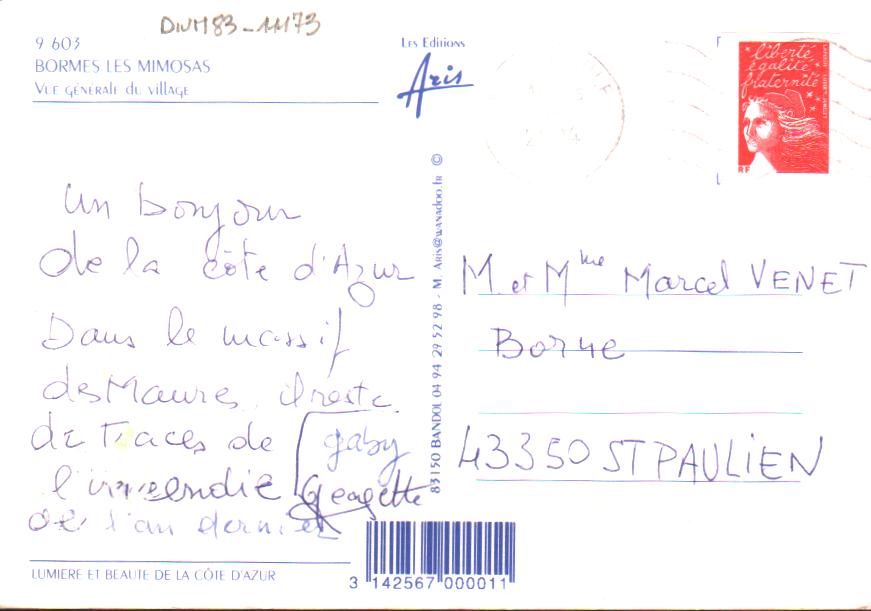 DIVM83-11173
9 603
BORMES LES MIMOSAS
VUE GÉNÉRALE DU VILLAGE
Les Editions
Aris
liberté
égalité
fraternité
RF
un bonjour
de la côte d'Azur
Dans le massif
des Maures, il reste
de Traces de
l'incendie
de l'an dernier
gaby
Georgette
83150 BANDOL 04 94 29 52 98 - M. Aris@wanadoo.fr ©
M. et Mme Marcel VENET
Borne
43350 ST PAULIEN
LUMIERE ET BEAUTE DE LA CÔTE D'AZUR
3 142567 000011